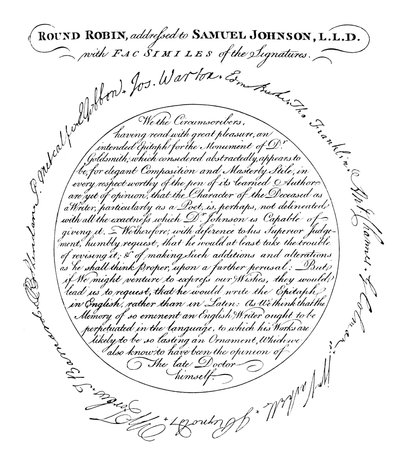 ROUND ROBIN, addressed to SAMUEL JOHNSON, L.L.D.
with FAC SIMILES of the Signatures.
We the Circumscribers,
having read with great pleasure, an
intended Epitaph for the Monument of Dr.
Goldsmith, which considered abstractedly, appears to
be, for elegant Composition and Masterly Stile, in
every respect worthy of the pen of its learned Author,
are yet of opinion, that the Character of the Deceased as
a Writer, particularly as a Poet, is, perhaps, not delineated
with all the exactness which Dr. Johnson is Capable of
giving it. We therefore, with deference to his Superior Judge-
ment, humbly request, that he would at least take the trouble
of revising it; & of making such additions and alterations
as he shall think proper, upon a further perusal: But
if We might venture to express our Wishes, they would
lead us to request, that he would write the Epitaph
in English, rather than in Latin: As We think that the
Memory of so eminent an English Writer ought to be
perpetuated in the language, to which his Works are
likely to be so lasting an Ornament, Which we
also know to have been the opinion of
The late Doctor
himself.
E Gibbon. Jos. Warton. Edm Burke. Tho Franklin. Ant Chamier. G Colman. Wm Vashell. J Reynolds. W Forbes. T Barnard. R B Sheridan. P Metcalfe